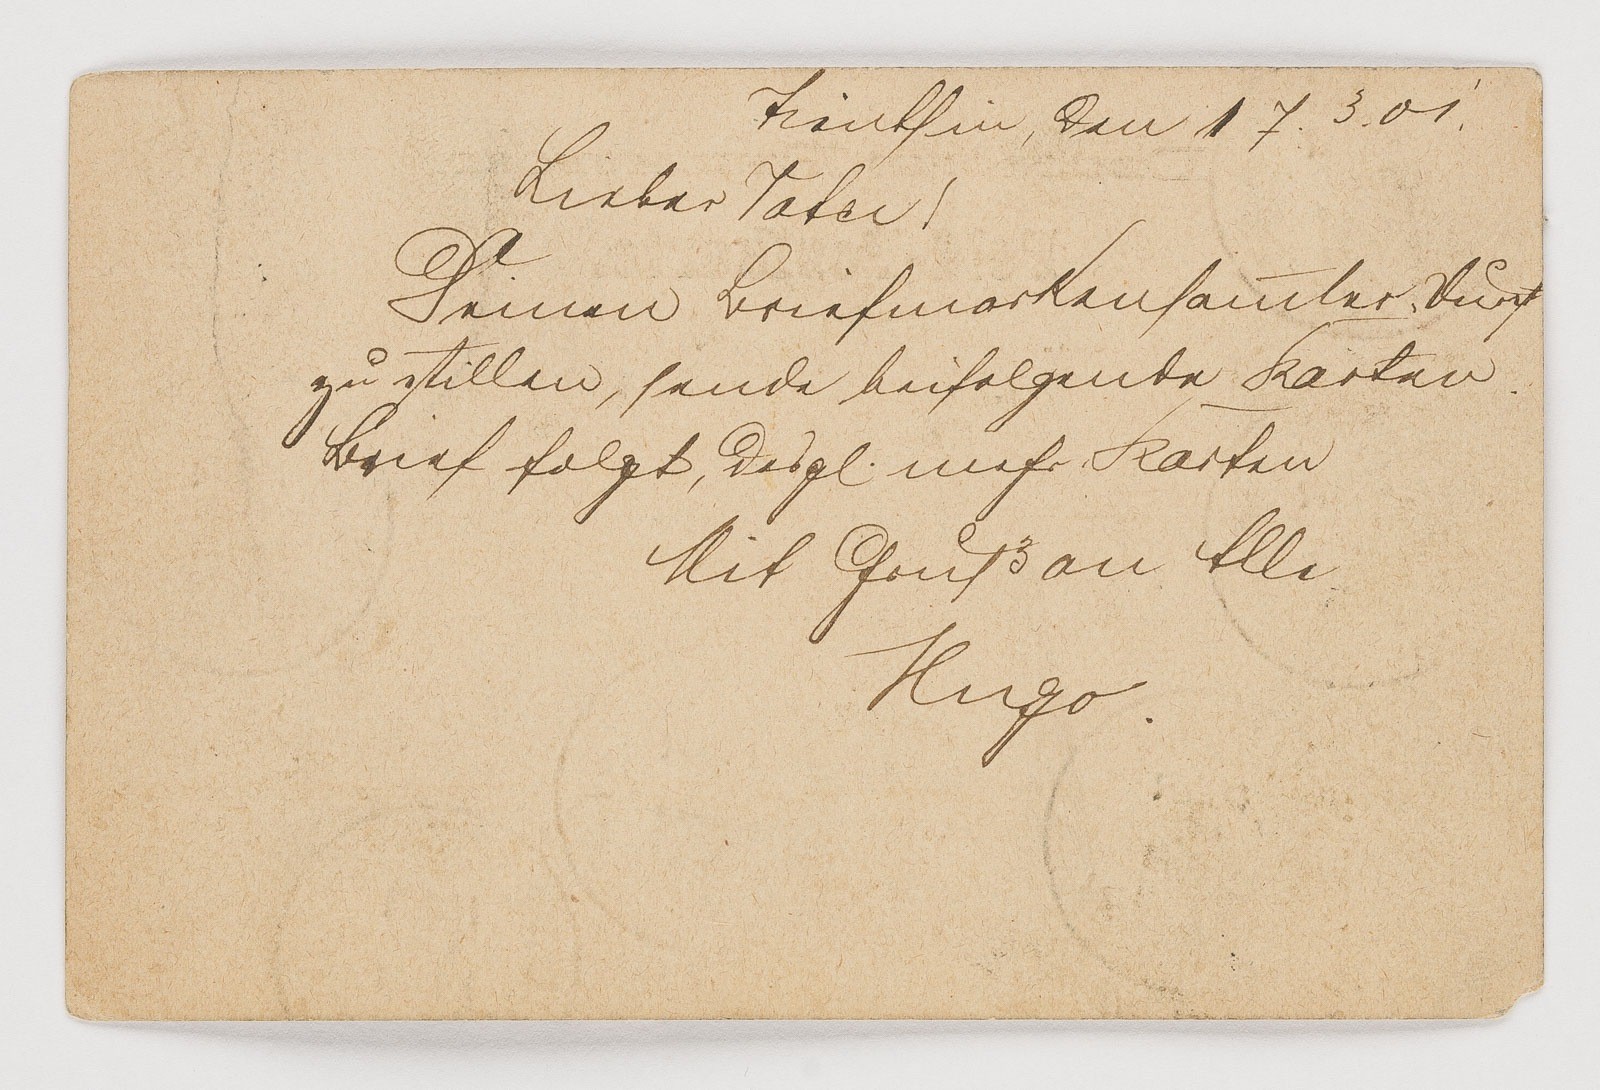 Tientsin, den 17. 3. 01.
Lieber Vater!
Deinen Briefmarkensam̅ler Durst
zu stillen, sende beifolgende Karten.
Brief folgt, desgl. mehr Karten
Mit Gruß an Alle
Hugo.